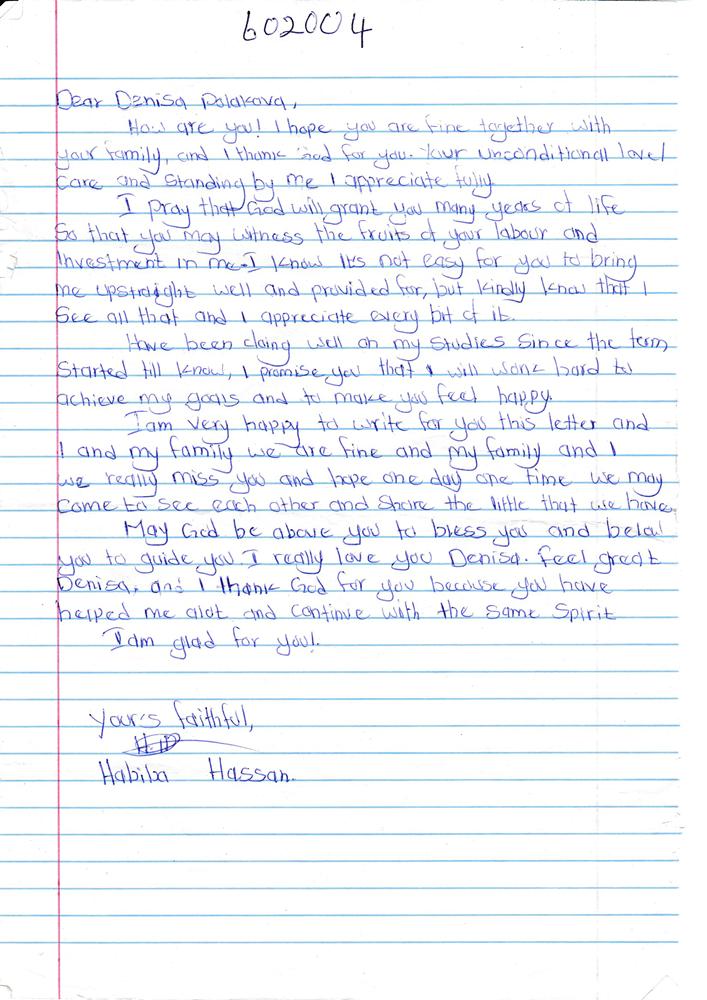 602004
Dear Denisa Polakova,
How are you! I hope you are fine together with
your family, and I thank God for you. Your unconditionall lovel
care and standing by me I appreciate fully
I pray that God will grant you many years of life
So that you may witness the fruits of your labour and
investment in me. I know its not easy for you to bring
me upstraight well and provided for, but kindly know that I
See all that and I appreciate every bit of it.
Have been doing well on my studies since the term
Started till know, I promise you that I will work hard to
achieve my goals and to make you feel happy.
I am very happy to write for you this letter and
I and my family we are fine and my family and I
we really miss you and hope one day one time we may
Come to see each other and share the little that we have.
May God be above you to bless you and below
you to guide you. I really love you Denisa. Feel great
Denisa, and I thank God for you because you have
helped me alot and continue with the same Spirit
I am glad for you!.
Your's faithful,
Habiba Hassan.